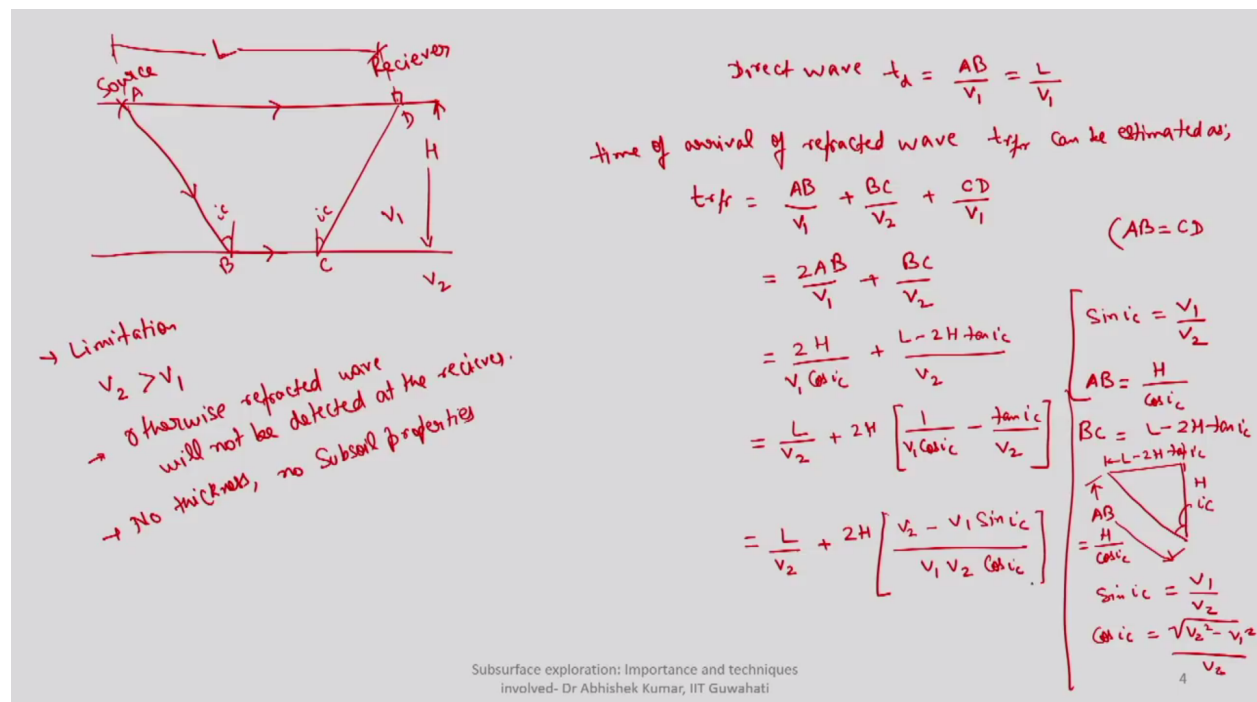 L
Source
Reciever
A
D
H
ic
ic
V₁
B
C
V₂
→ Limitation
V₂ > V₁
→ Otherwise refracted wave
will not be detected at the reciever.
→ No thickness, no Subsoil properties
Direct wave t_d = AB/V₁ = L/V₁
time of arrival of refracted wave trfr can be estimated as;
trfr = AB/V₁ + BC/V₂ + CD/V₁
(AB = CD
= 2AB/V₁ + BC/V₂
= 2H/(V₁ Cos ic) + (L - 2H tan ic)/V₂
= L/V₂ + 2H [1/(V₁ Cos ic) - tan ic/V₂]
= L/V₂ + 2H [(V₂ - V₁ Sin ic)/(V₁ V₂ Cos ic)]
Sin ic = V₁/V₂
AB = H/Cos ic
BC = L - 2H tan ic
L - 2H tan ic
H
ic
AB
= H/Cos ic
Sin ic = V₁/V₂
Cos ic = √(V₂² - V₁²)/V₂
Subsurface exploration: Importance and techniques
involved- Dr Abhishek Kumar, IIT Guwahati
4